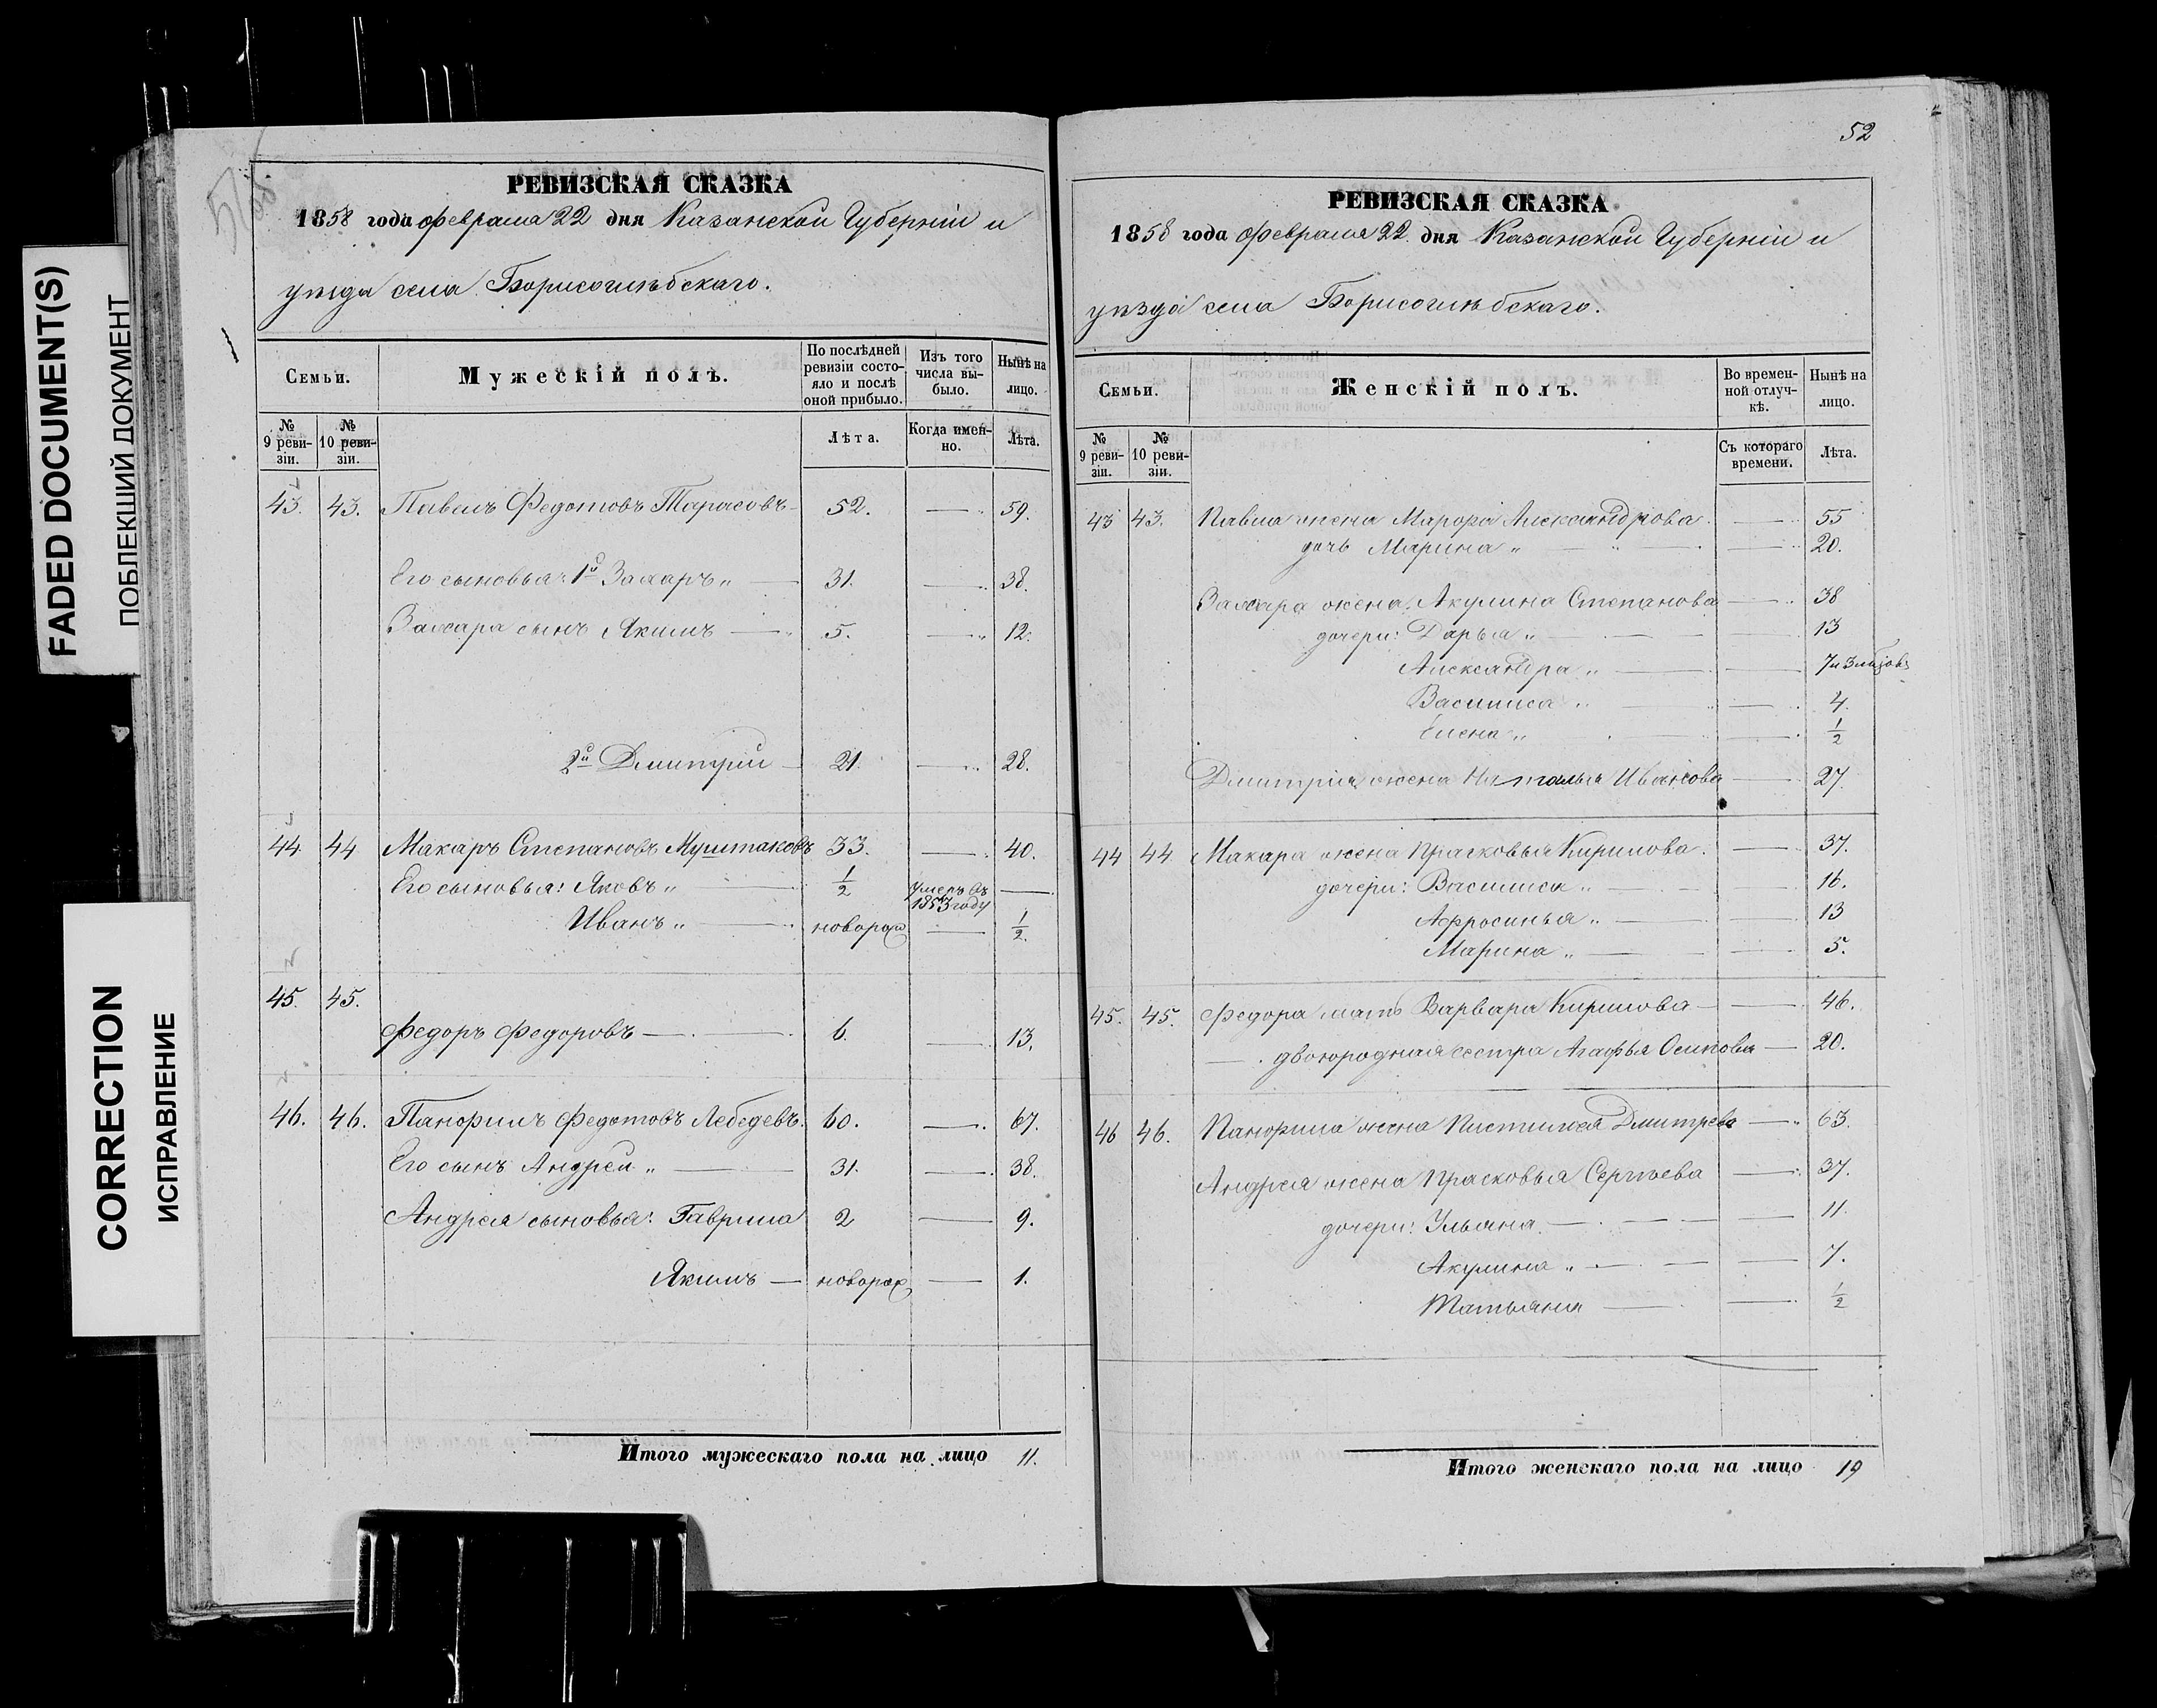 FADED DOCUMENT(S)
ПОБЛЕКШИЙ ДОКУМЕНТ
CORRECTION
ИСПРАВЛЕНИЕ
РЕВИЗСКАЯ СКАЗКА
1858 года февраля 22 дня Казанской Губерніи и
уѣзда села Борисоглѣбскаго.
Семьи. Мужескій полъ. По послѣдней ревизіи состояло и послѣ оной прибыло. Изъ того числа выбыло. Нынѣ на лицо.
№ 9 ревизіи. № 10 ревизіи. Лѣта. Когда именно. Лѣта.
43. 43. Павелъ Федотовъ Тарасовъ 52. — 59.
Его сыновья: 1й Захаръ „ — 31. — 38.
Захара сынъ Якимъ — 5. — 12.
2й Дмитрій — 21. — 28.
44. 44 Макаръ Степановъ Муштаковъ 33. — 40.
Его сыновья: Яковъ „ — 1/2 Умеръ въ 1853 году —
Иванъ „ — новорож — 1/2.
45. 45.
Федоръ Федоровъ — 6. — 13.
46. 46. Панфилъ Федотовъ Лебедевъ. 60. — 67.
Его сынъ Андрей „ — 31. — 38.
Андрея сыновья: Гаврила 2 — 9.
Якимъ — новорож — 1.
Итого мужескаго пола на лицо 11.
52
РЕВИЗСКАЯ СКАЗКА
1858 года февраля 22 дня Казанской Губерніи и
уѣзда села Борисоглѣбскаго.
Семьи. Женскій полъ. Во временной отлучкѣ. Нынѣ на лицо.
№ 9 ревизіи. № 10 ревизіи. Съ котораго времени. Лѣта.
43 43. Павла жена Марфа Александрова. — 55
дочь Марина „ — 20.
Захара жена: Акулина Степанова — 38
дочери: Дарья „ — 13
Александра „ — 7 и 3 мѣсяцовъ
Василиса „ — 4.
Елена „ — 1/2
Дмитрія жена Наталья Иванова — 27
44 44 Макара жена Прасковья Кирилова. — 37.
дочери: Василиса „ — 16.
Афросинья „ — 13
Марина „ — 5.
45. 45. Федора мать Варвара Кирилова — 46.
— двоюродная сестра Агафья Осипова — 20.
46 46. Панфила жена Пистимея Дмитрева — 63.
Андрея жена Прасковья Сергѣева — 37.
дочери: Ульяна — 11.
Акулина „ — 7.
Татьяна — 1/2
Итого женскаго пола на лицо 19